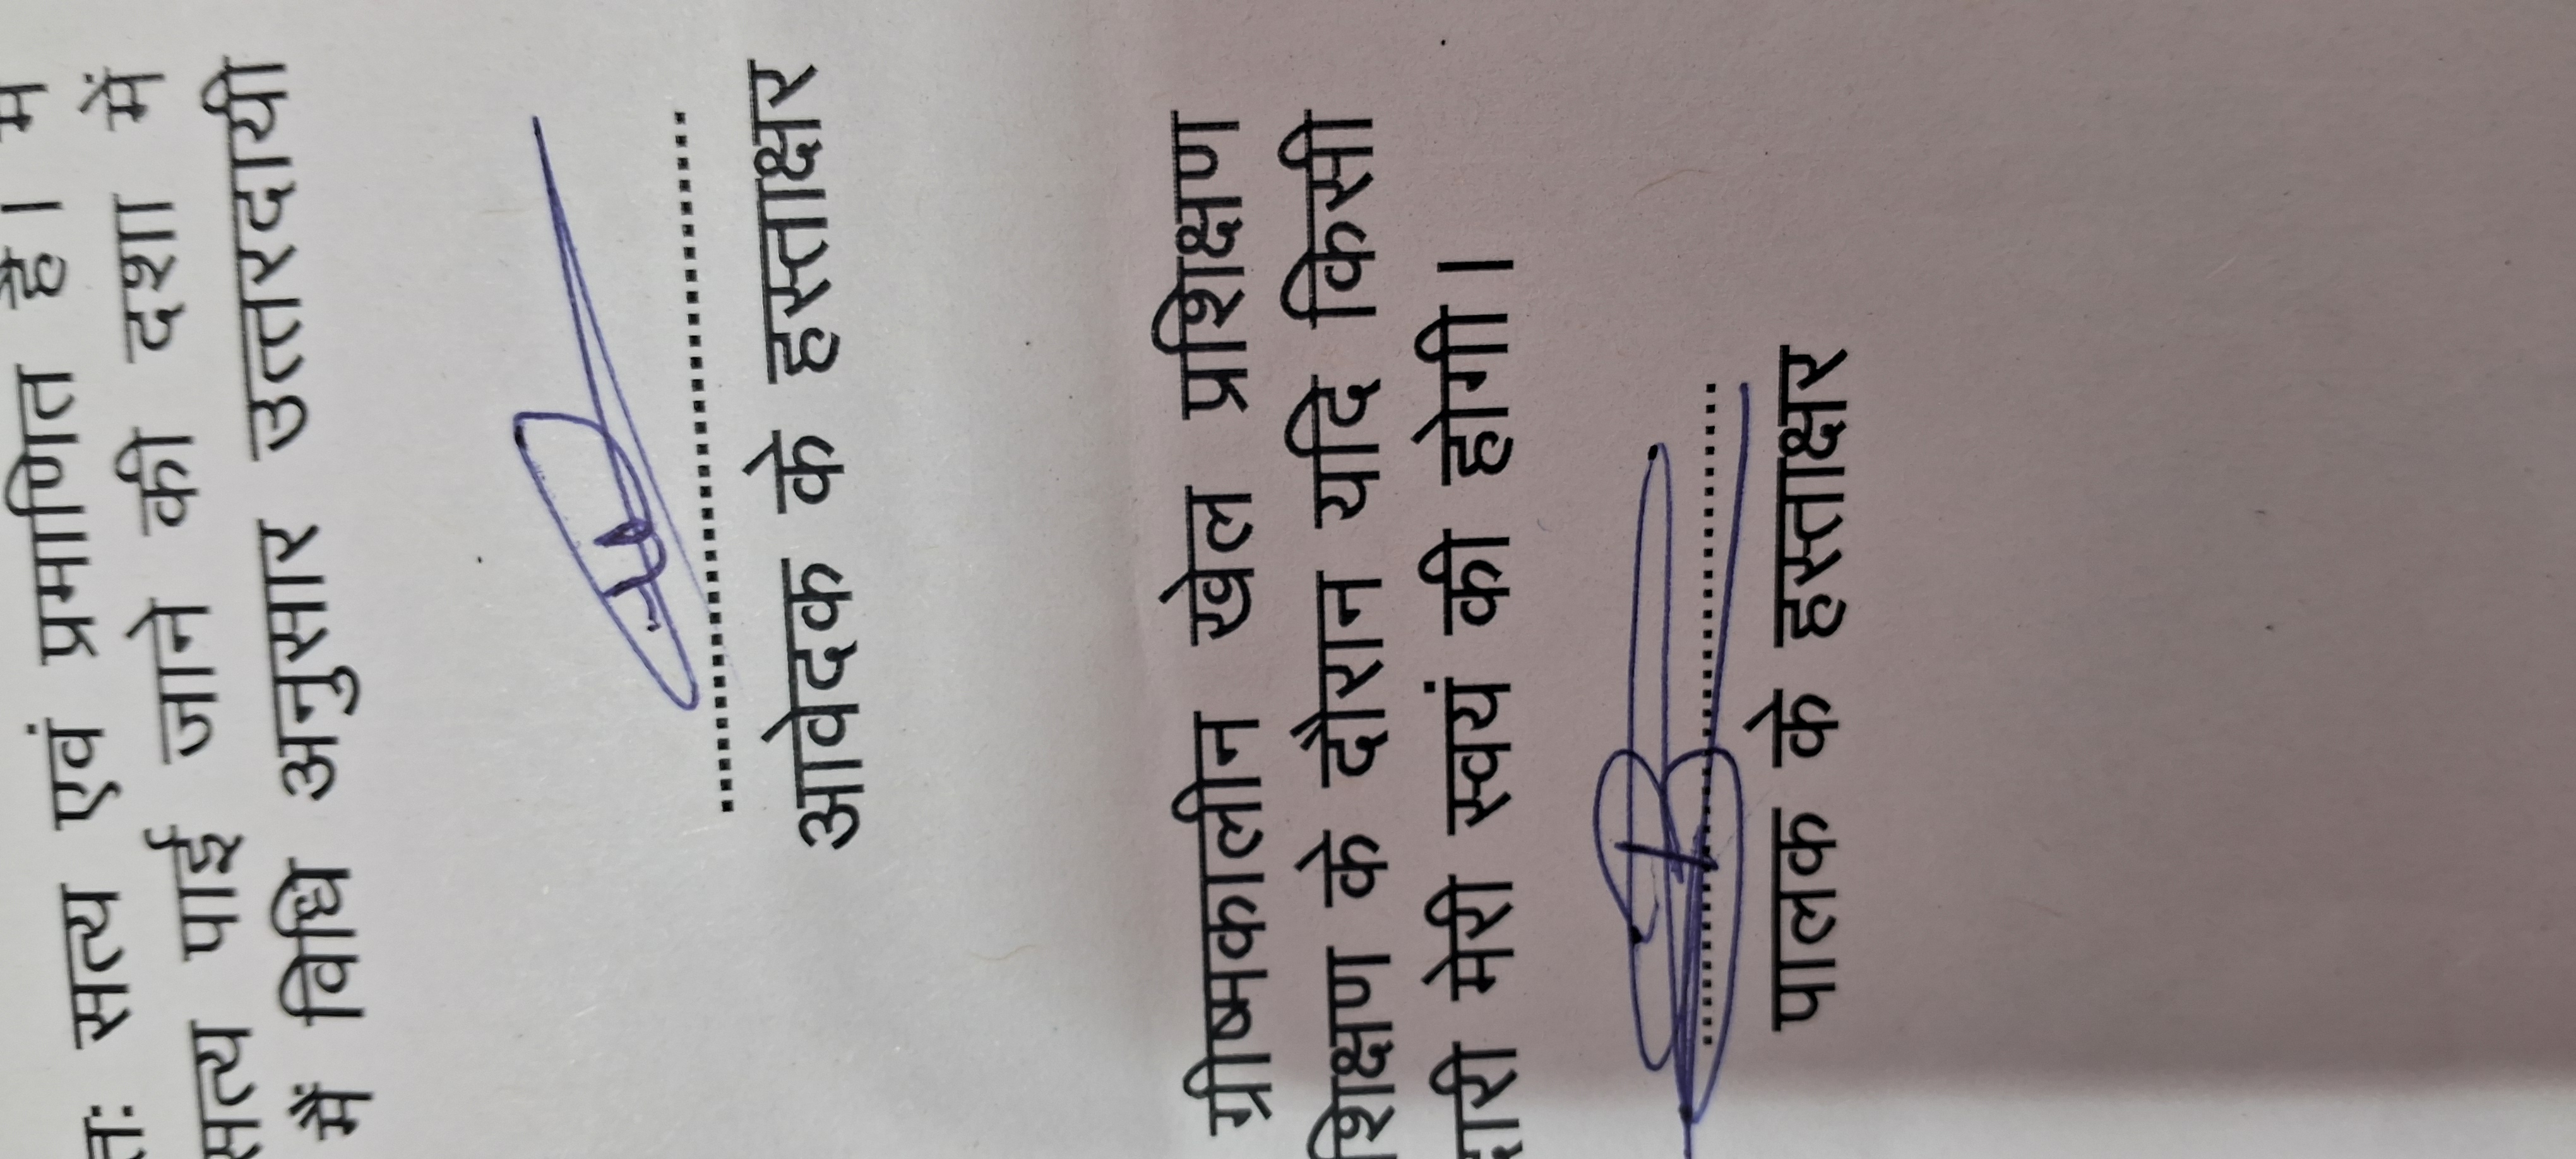 तः सत्य एवं प्रमाणित है। मैं
सत्य पाई जाने की दशा में
में विधि अनुसार उत्तरदायी
........................................
आवेदक के हस्ताक्षर
ग्रीष्मकालीन खेल प्रशिक्षण
शिक्षण के दौरान यदि किसी
दारी मेरी स्वयं की होगी।
........................................
पालक के हस्ताक्षर